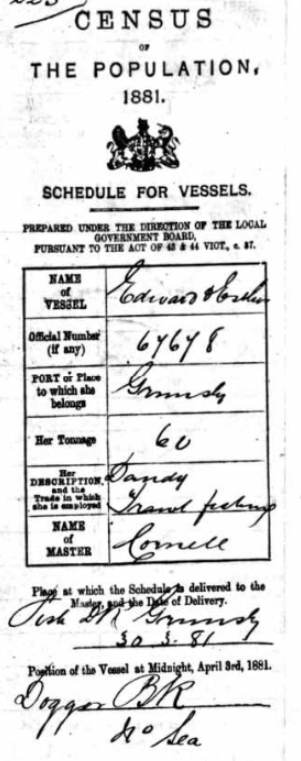 CENSUS
OF
THE POPULATION,
1881.
SCHEDULE FOR VESSELS.
PREPARED UNDER THE DIRECTION OF THE LOCAL
GOVERNMENT BOARD,
PURSUANT TO THE ACT OF 43 & 44 VICT., c. 37.
NAME
of
VESSEL
Edward & Esther
Official Number
(if any)
67678
PORT or Place
to which she
belongs
Grimsby
Her Tonnage
60
Her
DESCRIPTION,
and the
Trade in which
she is employed
Dandy
Trawl fishing
NAME
OF
MASTER
Cornell
Place at which the Schedule is delivered to the
Master, and the Date of Delivery.
Fish Dk Grimsby
30.3.81
Position of the Vessel at Midnight, April 3rd, 1881.
Dogger BK
No Sea